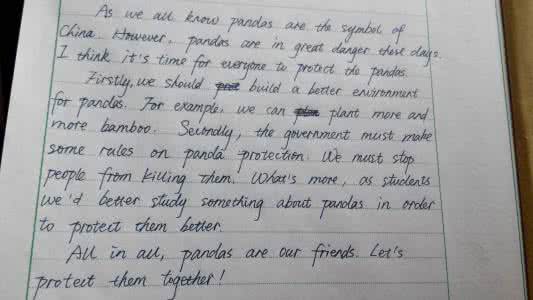 As we all know pandas are the symbol of
China. However, pandas are in great danger these days.
I think it's time for everyone to protect the pandas.
Firstly, we should build a better environment
for pandas. For example, we can plant more and
more bamboo. Secondly, the government must make
some rules on panda protection. We must stop
people from killing them. What's more, as students
we'd better study something about pandas in order
to protect them better.
All in all, pandas are our friends. Let's
protect them together!